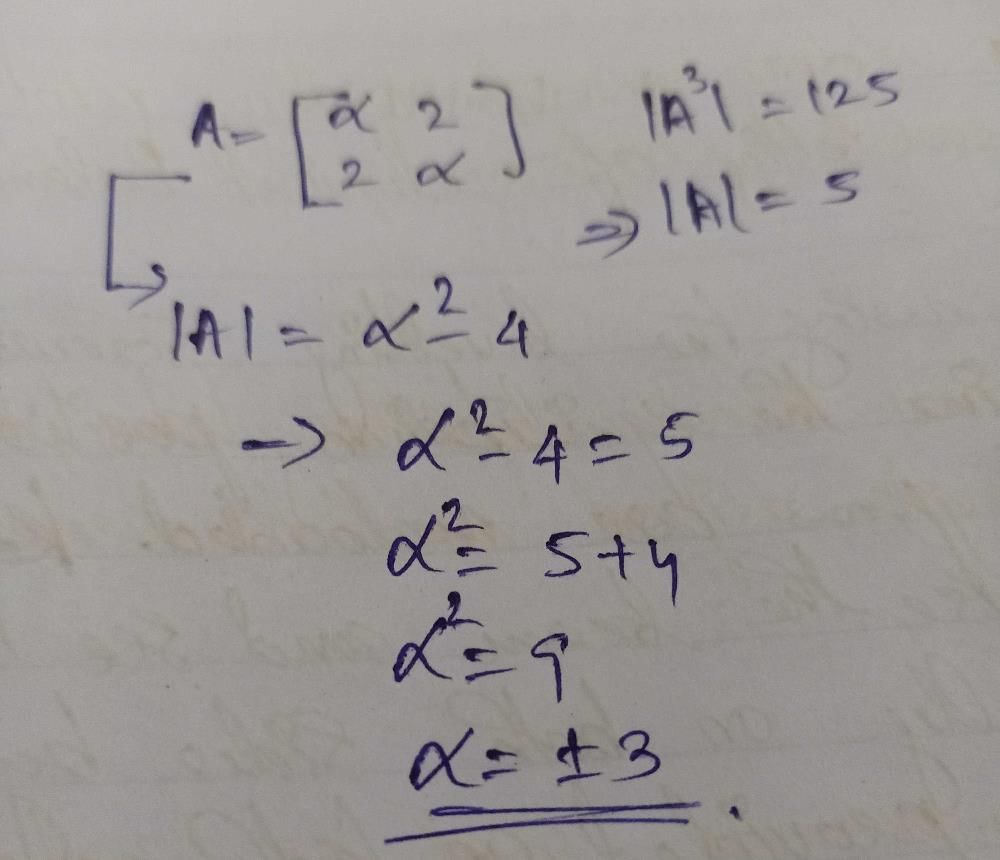 A = [α 2 |A³| = 125
2 α] ⇒ |A| = 5
|A| = α² - 4
→ α² - 4 = 5
α² = 5+4
α² = 9
α = ± 3.